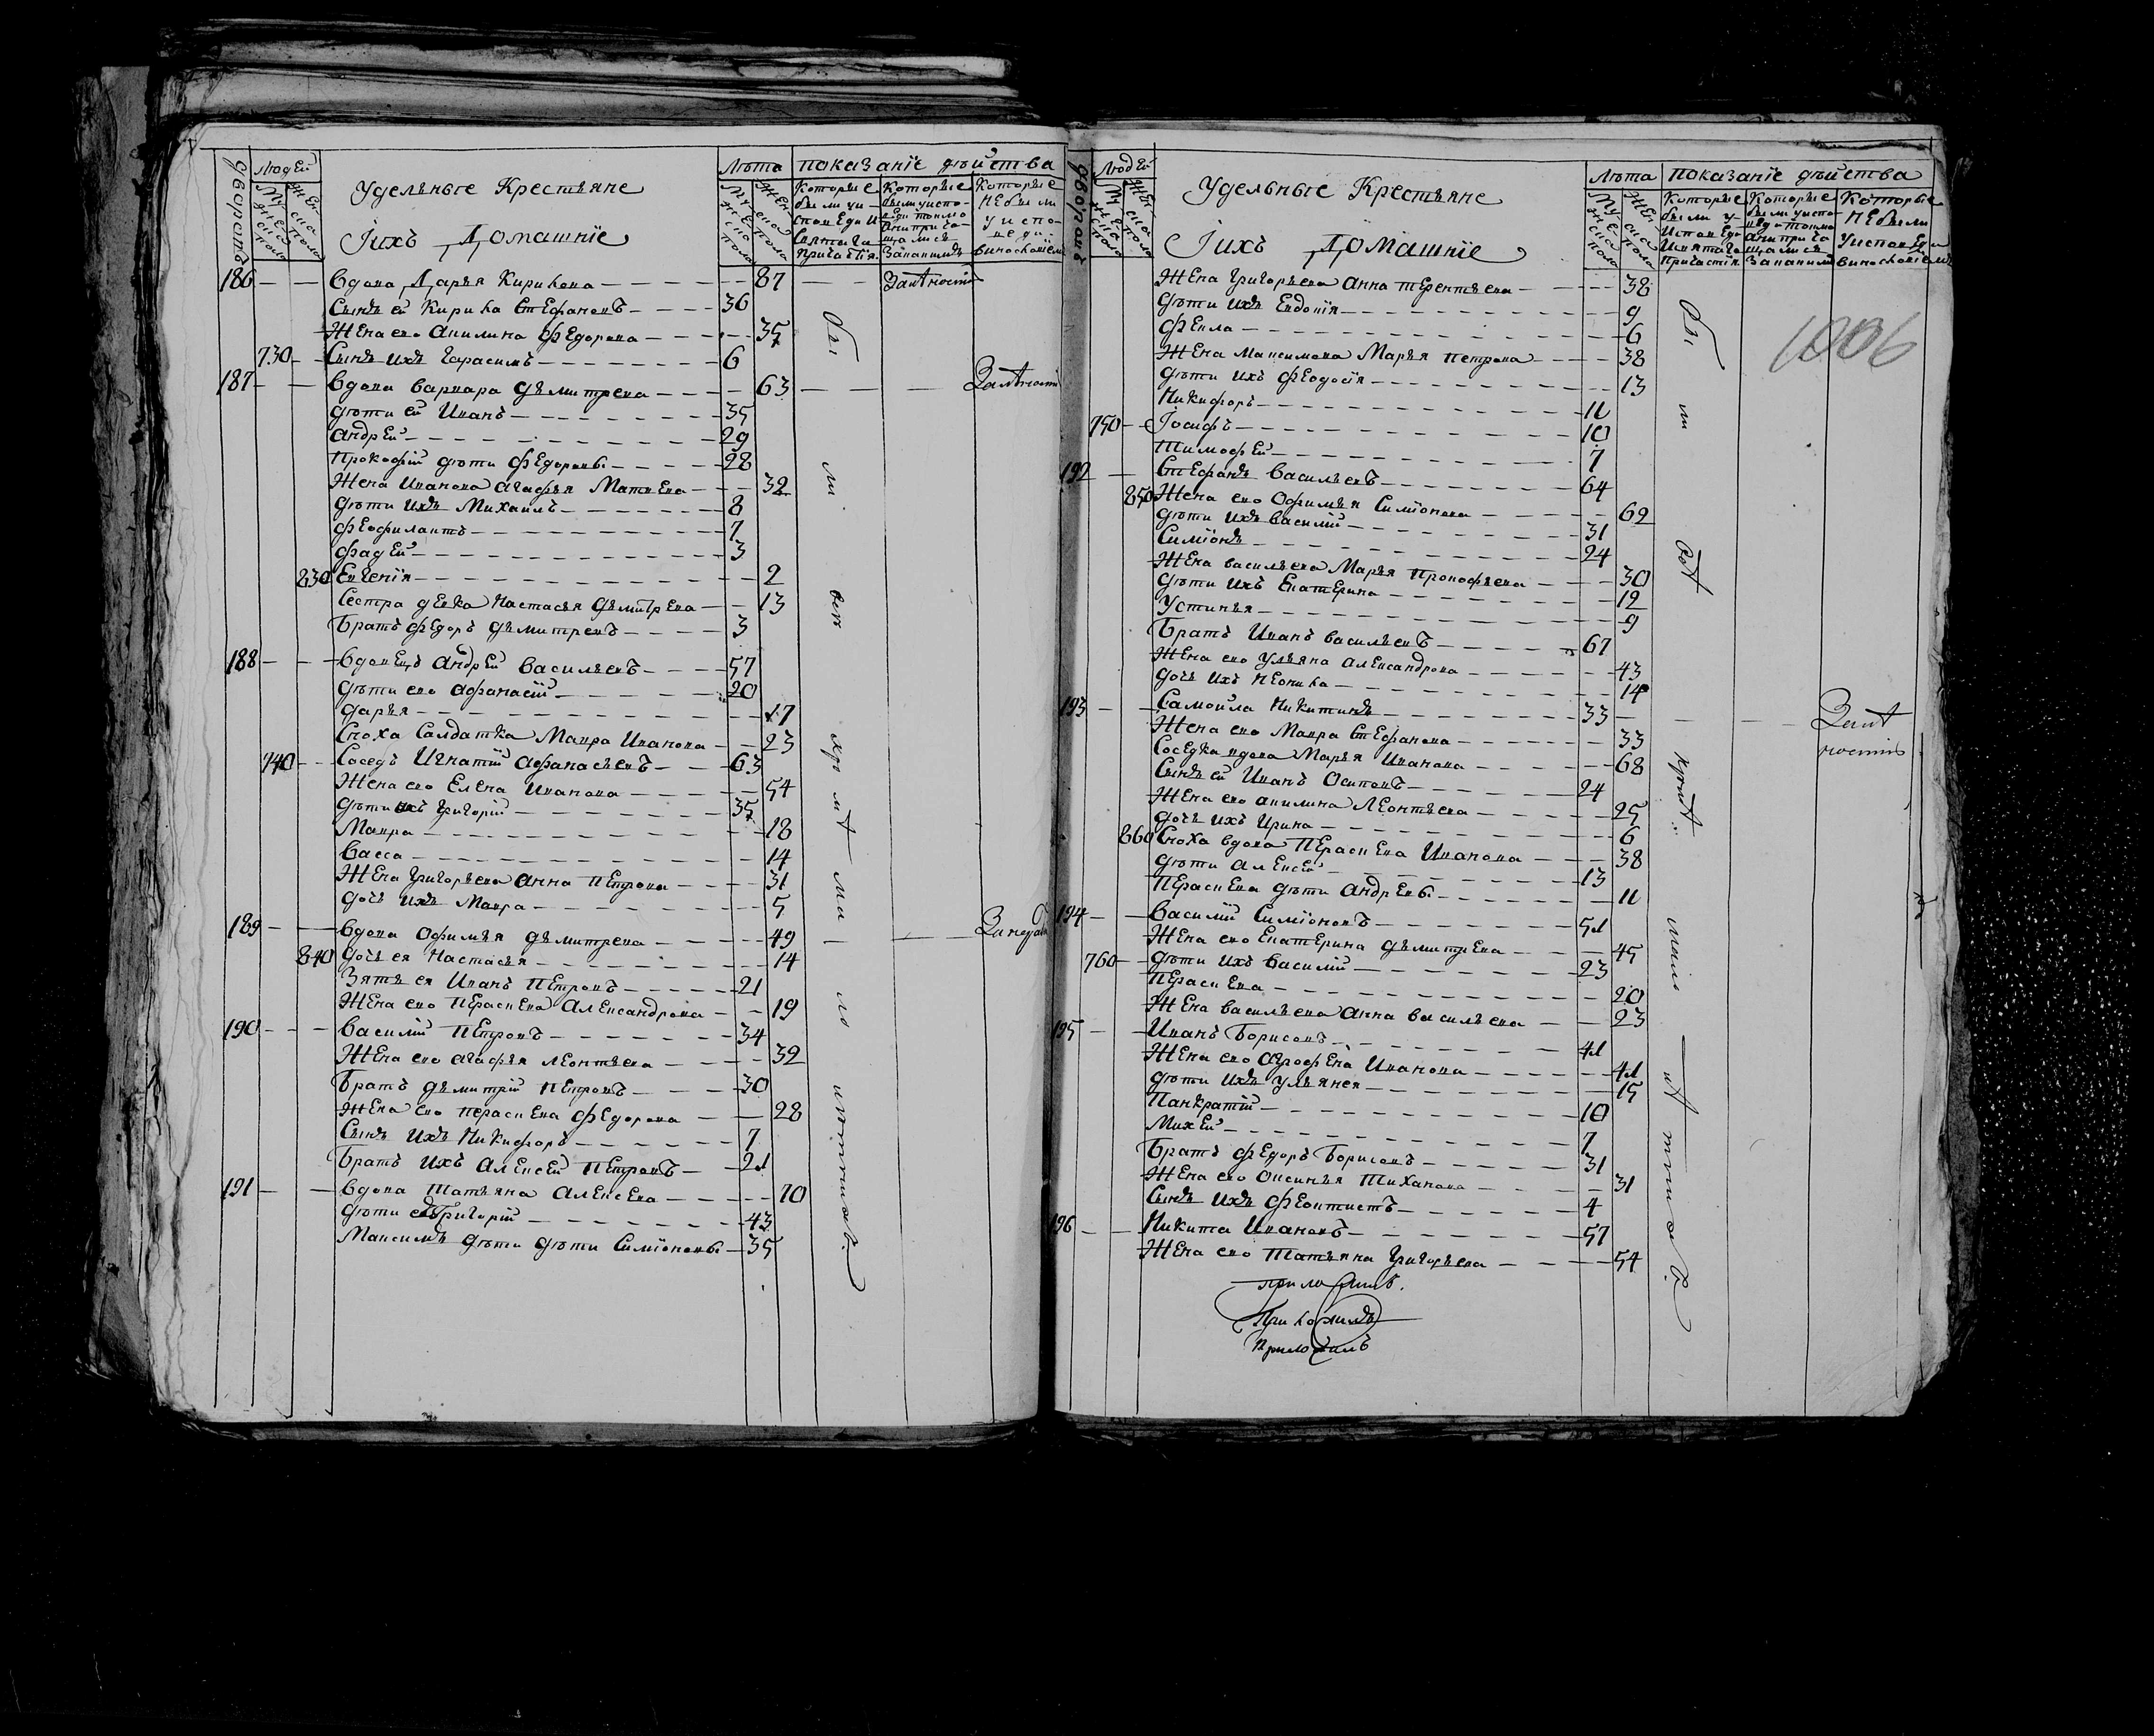 дворовъ
Людей
Мужеска пола
Женска пола
Удельные Крестьяне
Iихъ Домашнiе
Лѣта
Мужеска пола
Женска пола
показанiе дѣйства
Которые были уисповеди и святаго причастiя
Которые были уисповеди токмо а не причащались
Которые не были у исповеди
186 — — вдова Дарья Кирикова — 87
Сынъ ей Кирика Стефановъ — 36
Жена его Акилина Федорова — 35
730 Сынъ ихъ Герасимъ — 6
187 — — вдова варвара дьмитрева — 63
дѣти ей Иванъ — 35
андрей — 29
Прокофiй дѣти Федоровы — 28
Жена Иванова агафья Матвева — 32
дѣти ихъ Михаилъ — 8
феофилактъ — 7
фадей — 3
830 Евгенiя — 2
Сестра девка Настасья дьмитрева — 13
Братъ федоръ дьмитревъ — 3
188 — — вдовецъ андрей васильевъ — 57
дѣти его афанасiй — 20
дарья — 17
Сноха Салдатка Мавра Иванова — 23
740 Соседъ Игнатiй афанасьевъ — 63
Жена его Елена Иванова — 54
дѣти ихъ Григорiй — 35
Мавра — 18
васса — 14
Жена Григорьева анна петрова — 31
дочь ихъ Мавра — 5
189 — — вдова Офимья дьмитрева — 49
840 дочь ея Настасья — 14
Зять ея Иванъ Петровъ — 21
Жена его Параскева александрова — 19
190 — — василiй Петровъ — 34
Жена его агафья леонтьева — 32
Братъ дьмитрiй Петровъ — 30
Жена его параскева федорова — 28
Сынъ ихъ Никифоръ — 7
Братъ ихъ алексей петровъ — 21
191 — — вдова татьяна алексева — 70
дѣти ей Григорiй — 43
Максимъ дѣти дѣти Симiоновы — 35
дворовъ
Людей
Мужеска пола
Женска пола
Удельные Крестьяне
Iихъ Домашнiе
Лѣта
Мужеска пола
Женска пола
показанiе дѣйства
1006
Жена Григорьева анна терентьева — 38
дѣти ихъ Евдокiя — 9
фекла — 6
Жена Максимова Марья петрова — 38
дѣти ихъ феодосiя — 13
Никифоръ — 11
750 Iосифъ — 10
Тимофей — 7
192 — Стефанъ васильевъ — 64
850 Жена его Офимья Симiонова — 62
дѣти ихъ василiй — 31
Симiонъ — 24
Жена васильева Марья Прокофьева — 30
дѣти ихъ Екатерина — 12
Устинья — 9
Братъ Иванъ васильевъ — 67
Жена его ульяна александрова — 43
дочь ихъ Неонила — 14
193 — — Самойла Никитинъ — 33
Жена его Мавра Стефанова — 33
Соседка вдова Марья Иванова — 68
Сынъ ей Иванъ Осиповъ — 24
Жена его акилина Леонтьева — 25
дочь ихъ Ирина — 6
860 Сноха вдова Параскева Иванова — 38
дѣти алексей — 13
Параскева дѣти андревы — 11
194 — — василiй Симiоновъ — 51
Жена его Екатерина дьмитрева — 45
760 дѣти ихъ василiй — 23
Параскева — 20
Жена васильева анна васильева — 23
195 — — Иванъ Борисовъ — 41
Жена его агрофена Иванова — 41
дѣти ихъ ульянея — 15
Панкратiй — 10
Михей — 7
Братъ федоръ Борисовъ — 31
Жена его Оксинья Тиханова — 31
Сынъ ихъ феоктистъ — 4
196 — — Никита Ивановъ — 57
Жена его Татьяна Григорьева — 54
приложилъ